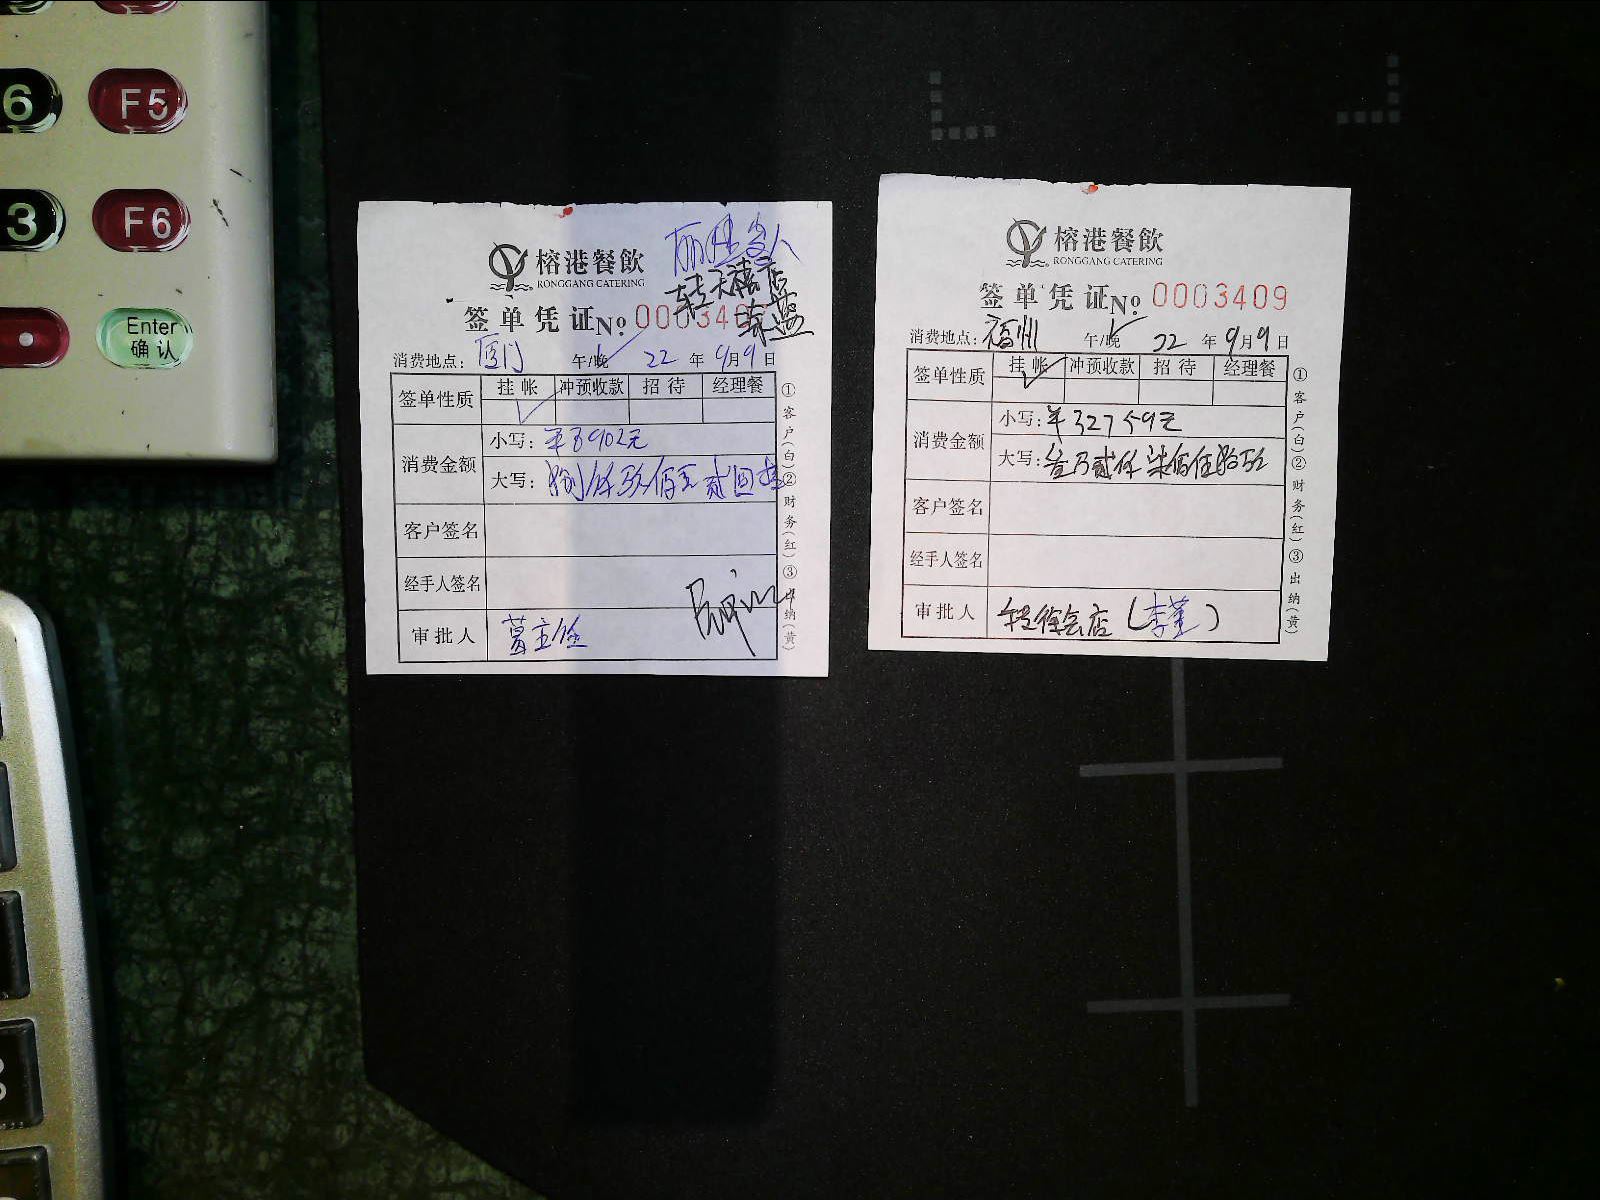 6
F5
3
F6
Enter
确认
榕港餐飲
RONGGANG CATERING
转天禧店
签单凭证 No.
消费地点: 厦门 午/晚 22 年 9月 9日
签单性质 挂帐 冲预收款 招待 经理餐
消费金额
小写: ¥3902元
大写: 仟玖佰 贰
客户签名
经手人签名
审批人 葛主任
①客户(白)②财务(红)③出纳(黄)
榕港餐飲
RONGGANG CATERING
签单凭证 No. 0003409
消费地点: 福州 午/晚 22 年 9月 9日
签单性质 挂帐 冲预收款 招待 经理餐
消费金额
小写: ¥32759元
大写: 叁万贰仟柒佰伍拾玖
客户签名
经手人签名
审批人 转 店 (李莲)
①客户(白)②财务(红)③出纳(黄)